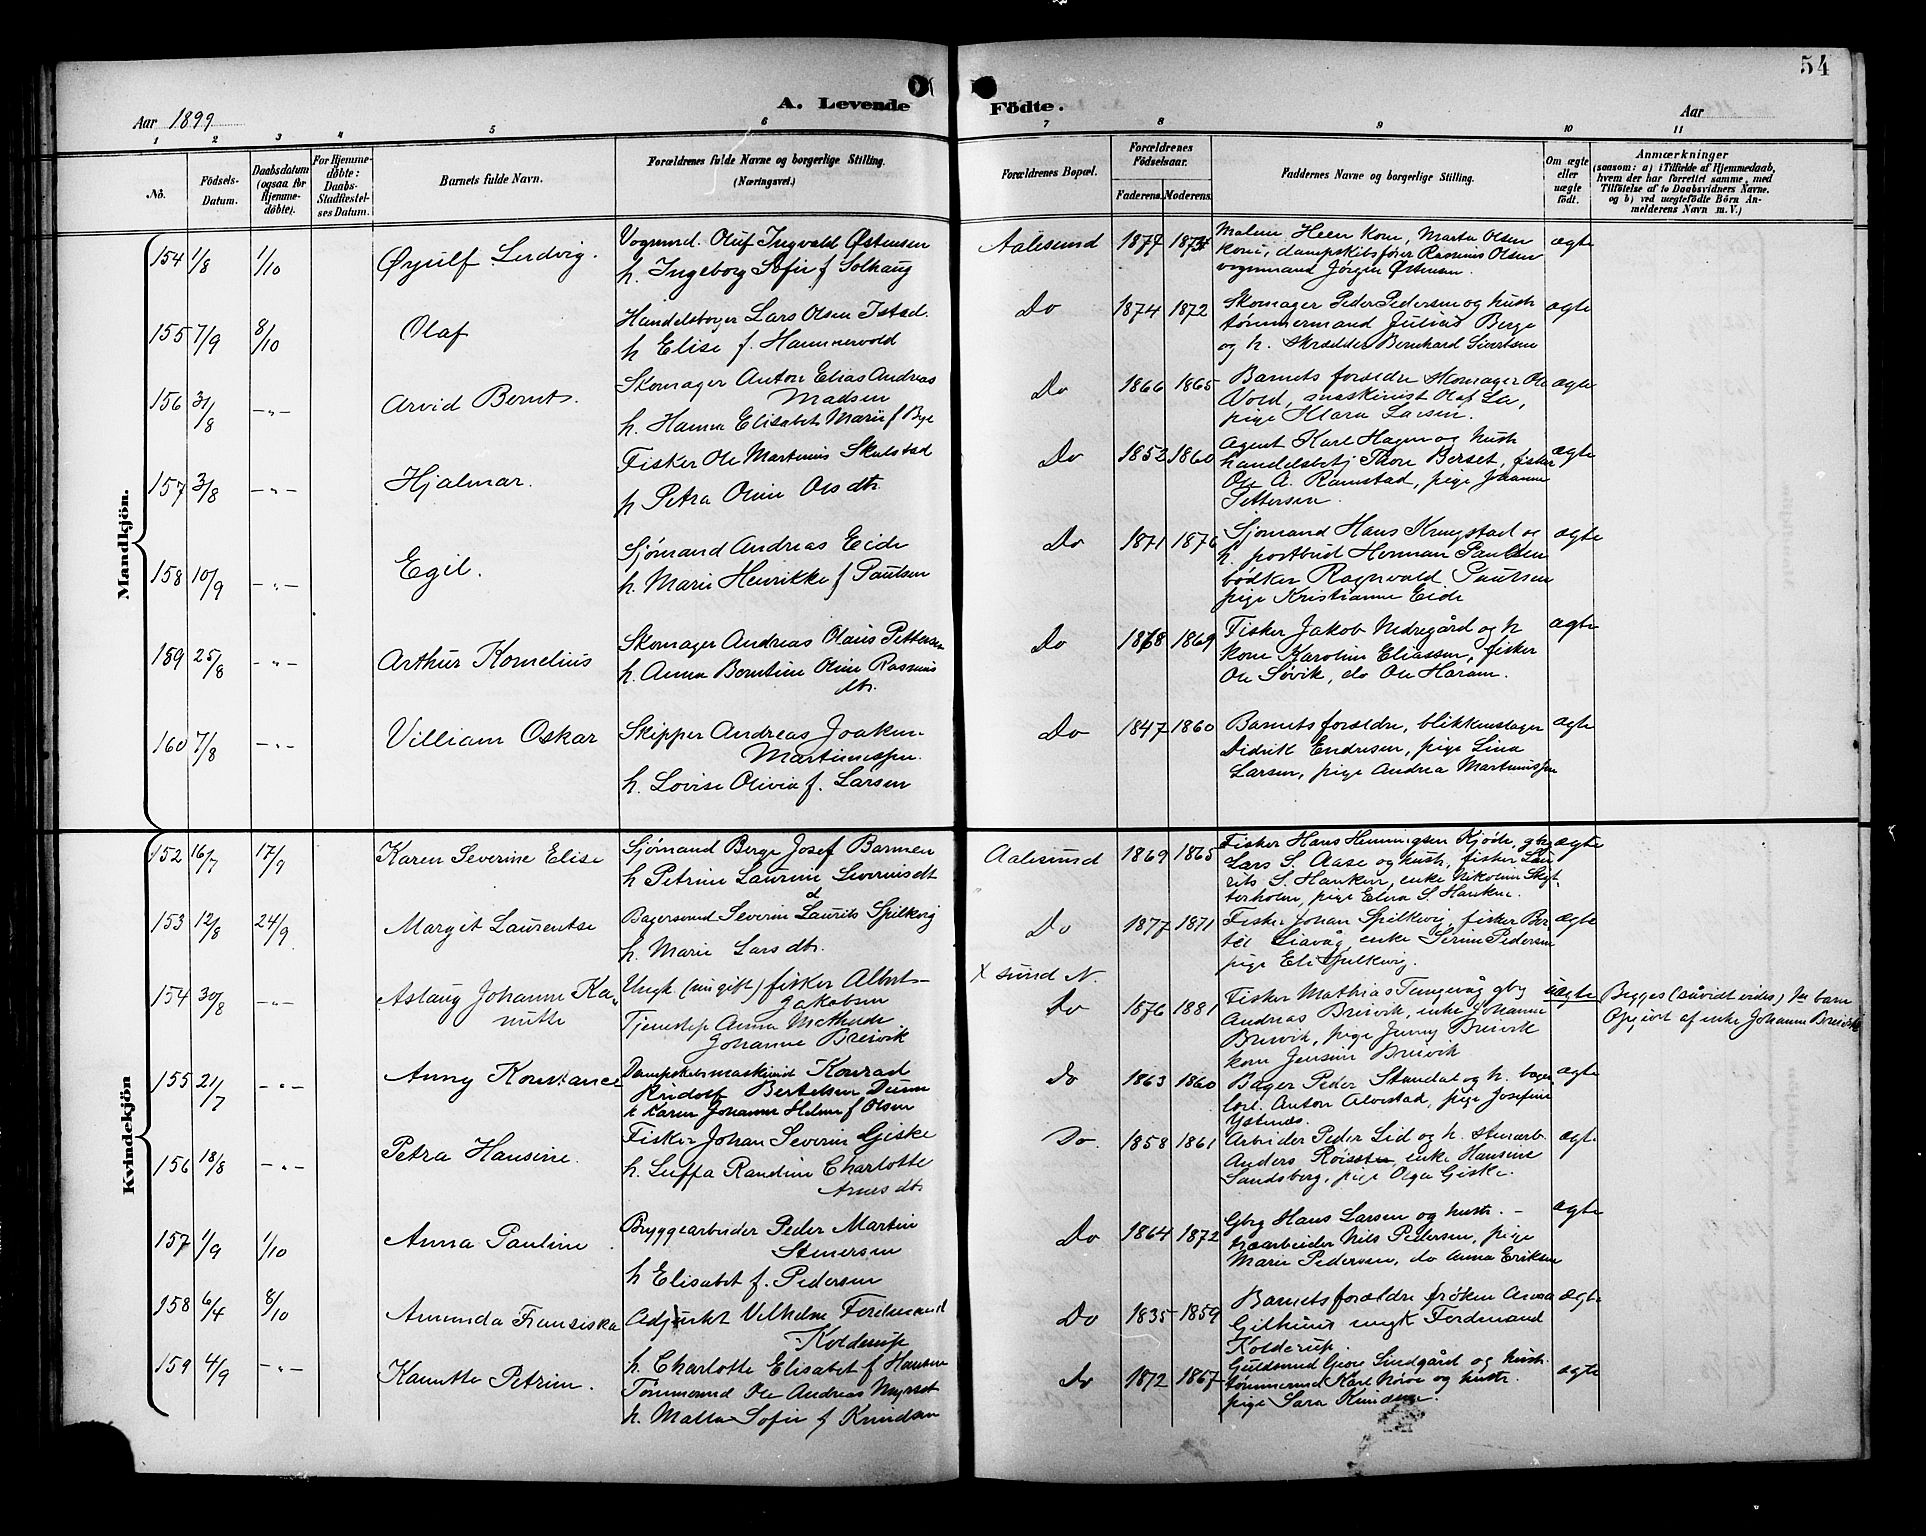 54
A. Levende Födte.
Aar 1899
Aar
1 2 3 4 5 6 7 8 9 10 11
No.
Födsels-Datum.
Daabsdatum (ogsaa for Hjemme-døbte).
For Hjemme-døbte: Daabs-Stadfæstel-ses Datum.
Barnets fulde Navn.
Forældrenes fulde Navne og borgerlige Stilling. (Næringsvei.)
Forældrenes Bopæl.
Forældrenes Födselsaar.
Faderens. Moderens.
Faddernes Navne og borgerlige Stilling.
Om ægte eller uægte født.
Anmærkninger
(saasom: a) i Tilfælde af Hjemmedaab, hvem der har forrettet samme, med Tilföielse af to Daabsvidners Navne. og b) ved uægtefödte Börn Anmelderens Navn m. V.)
Mandkjön.
154 1/8 1/10 Øyulf Ludvig. Vognmd. Oluf Ingvald Østensen
h. Ingeborg Sofie f Solhaug
Aalesund 1874 1874
Malene Heen kone, Marta Olsen
kone, dampskibsfører Rasmus Olsen
vognmand Jörgen Østensen. ægte
155 7/9 8/10 Olaf Handelsborger Lars Olsen Istad.
h Elise f. Hammervold
Do 1874 1872
Skomager Peder Pedersen og hustr
tømmermand Julius Berge
og h. Skrædder Bernhard Sivertsen ægte
156 31/8 -"- Arvid Bernts. Skomager Anton Elias Andreas
Madsen
h. Hanna Elisabet Marie f Bye
Do 1866 1865
Barnets forældre Skomager Ole
Vold, maskinist Olaf
pige Klara Larsen ægte
157 3/8 -"- Hjalmar. Fisker Ole Martinus Skulstad
h Petra Oline Olsdtr.
Do 1852 1860
Agent Karl Hagen og hustr
handelsbetj Thore Berset, fisker
Ole A. Ramstad, pige Johanne
Pettersen. ægte
158 10/9 -"- Egil. Sjømand Andreas Eide
h. Marie Henrikke f Paulsen
Do 1871 1876
Sjømand Hans Krngstad og
h. postbud Herman Paulsen
bødker Ragnvald Paulsen
pige Kristianne Eide ægte
159 25/8 -"- Arthur Kornelius Skomager Andreas Olaus Pettersen
h. Anna Berntine Oline Rasmus
dtr.
Do 1868 1869
Fisker Jakob Nedregård og h
kone Karoline Eliassen, fisker
Ole Søvik, do Ole Haram. ægte
160 7/8 -"- Villiam Oskar Skipper Andreas Joakim
Martinussen.
h. Lovise Olivia f. Larsen
Do 1847 1860
Barnets forældre, blikkenslager
Didrik Endresen, pige Lina
Larsen, pige Andrea Martinussen ægte
Kvindekjön
152 16/7 17/9 Karen Severine Elise Sjømand Berge Josef Barmen
h Petrine Laurine Severinsdt
Aalesund 1869 1865
Fisker Hans Henningsen Kjöde, gbg
Lars S. Aase og hustr, fisker Lau
rits S. Hanken, enke Nikoline Skyt
terholm, pige Elina S. Hanken. ægte
153 12/8 24/9 Margit Laurentse Bagersvend Severin Laurits Spilkevig
h. Marie Larsdtr.
Do 1877 1871
Fisker Johan Spilkevig, fisker Ber
tel Liavåg, enke Serine Pedersen
pige Eli Spilkevig. ægte
154 30/8 -"- Aslaug Johanne Ka-
nutte
Ungk (ungift) fisker Albert
Jakobsen
Tjenestep Anna Mathilde
Johanne Breivik
X sund N.
Do 1876 1881
Fisker Mathias Tungevåg gbg
Andreas Breivik, enke Johanne
Breivik, pige Jenny Breivik
kone Jensine Breivik uægte
Begges (såvidt vides) 1ste barn
Opgivet af enke Johanne Breivik
155 21/7 -"- Anny Konstance Dampskibsmaskinist Konrad
Rudolf Bertelsen Duun
h Karen Johanne Helene f Olsen
Do 1863 1860
Bager Peder Standal og h. bager
Anton Alvestad, pige Josefine
Ystenæs. ægte
156 18/8 -"- Petra Hansine. Fisker Johan Severin Giske
h. Luffa Randine Charlotte
Arnesdtr
Do. 1858 1861
Arbeider Peder Lid og h. stenarb.
Anders Røisset enke Hansine
Sandsberg, pige Olga Giske. ægt.
157 1/9 1/10 Anna Pauline Bryggearbeider Peder Martin
Stenersen
h Elisabet f. Pedersen
Do 1864 1872
Gbg Hans Larsen og hustr. -
træarbeider Nils Pedersen, pige
Marie Pedersen, do Anna Eriksen ægte
158 6/4 8/10 Amunda Fransiska Adjunkt Vilhelm Ferdinand
Kolderup
h. Charlotte Elisabet f Hansen
Do 1835 1859
Barnets forældre frøken Anna
Gilhuus ungk Ferdinand
Kolderup. ægte
159 4/9 -"- Kanutte Petrine. Tømmermd Ole Andreas Myrset
h. Matta Sofie f Knudsen
Do 1872 1867
Guldsmed Georg Lindgård og hustr.
tømmermd Karl Nöre og hustr.
pige Sara Knudsen. ægte